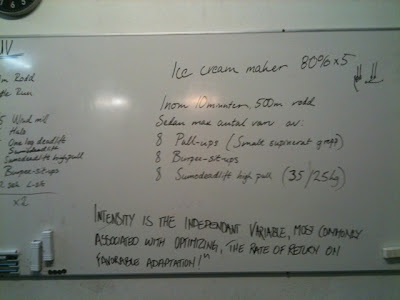 IV
Rodd
Run
Wind mil
Halo
One leg deadlift
Sumodeadlift
Sumodeadlift high pull
Burpee-sit-ups
x2
Ice cream maker 80% x 5
Inom 10 minuter, 500m rodd
Sedan max antal varv av:
8 Pull-ups (Smalt supinerat grepp)
8 Burpee-sit-ups
8 Sumodeadlift high pull (35/25kg)
INTENSITY IS THE INDEPENDANT VARIABLE, MOST COMMONLY
ASSOCIATED WITH OPTIMIZING, THE RATE OF RETURN ON
FAVORABLE ADAPTATION!"